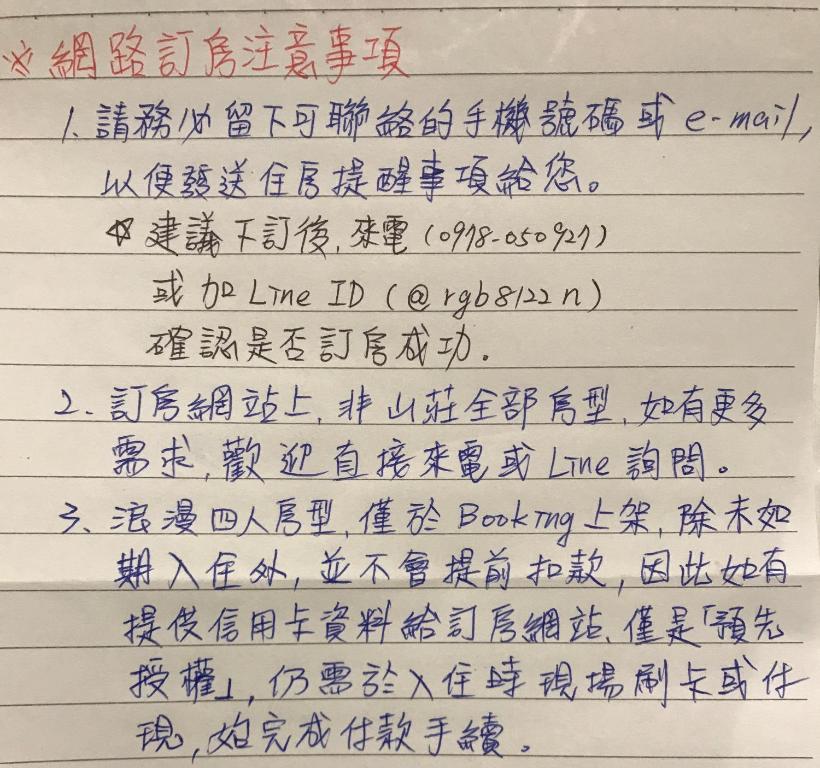 ※網路訂房注意事項
1. 請務必留下可聯絡的手機號碼或 e-mail,
以便發送住房提醒事項給您。
☆ 建議下訂後, 來電 (0978-050927)
或加 Line ID (@rgb8122n)
確認是否訂房成功.
2、訂房網站上, 非山莊全部房型, 如有更多
需求, 歡迎直接來電或 Line 詢問。
3、浪漫四人房型, 僅於 Booking 上架, 除未如
期入住外, 並不會提前扣款, 因此如有
提供信用卡資料給訂房網站, 僅是「預先
授權」, 仍需於入住時現場刷卡或付
現, 始完成付款手續。